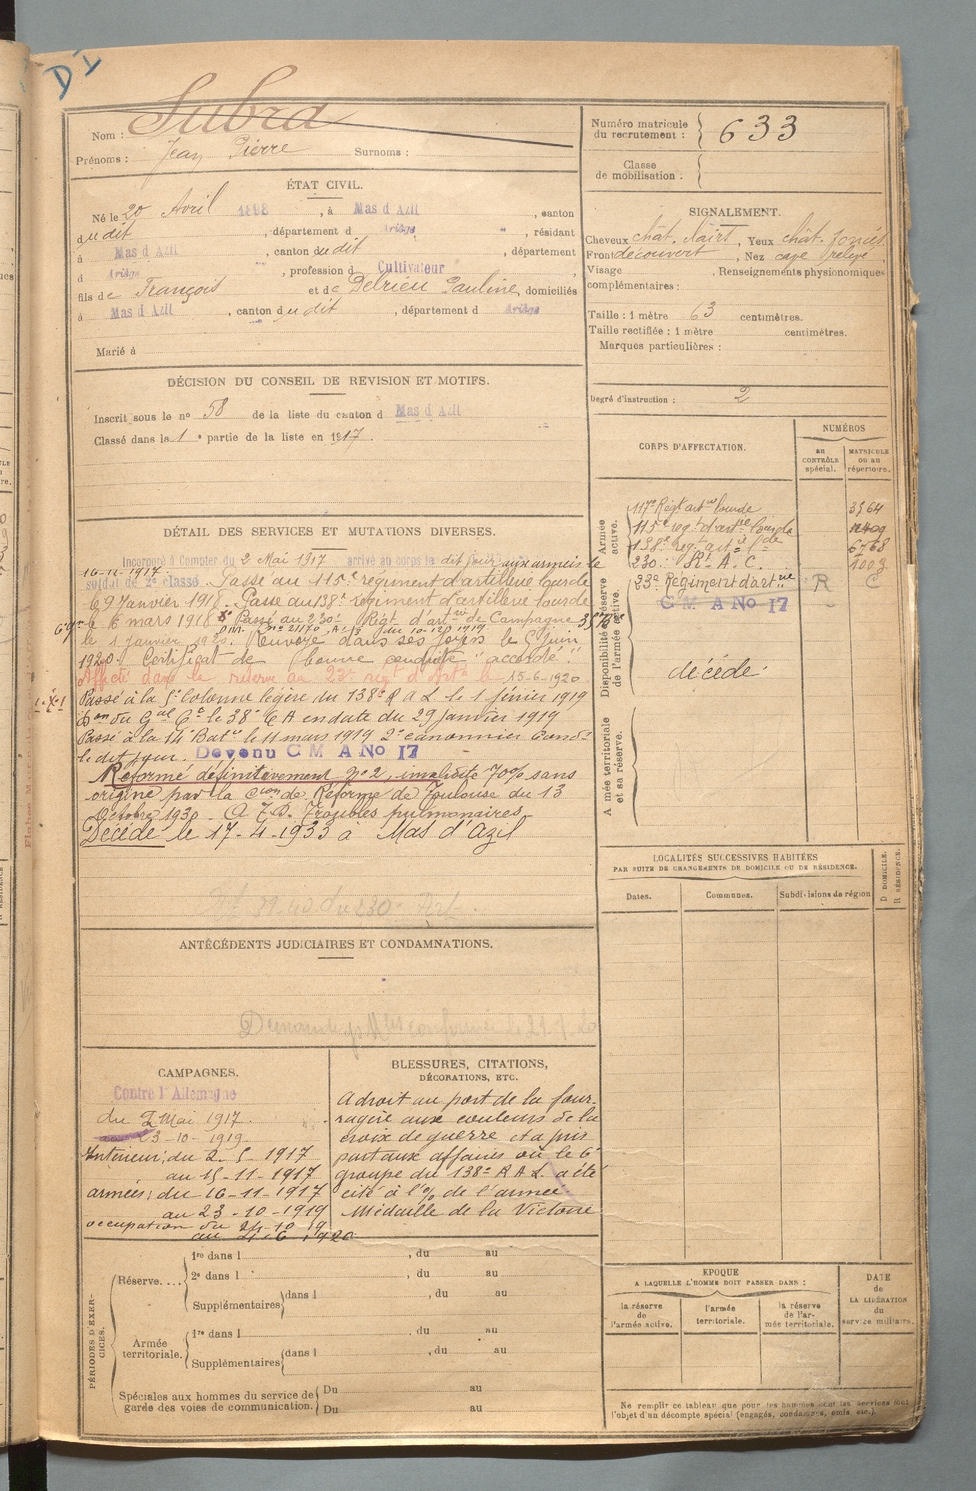 D I
Nom : Subra
Prénoms : Jean Pierre Surnoms :
Numéro matricule du recrutement : 633
Classe de mobilisation :
ÉTAT CIVIL.
Né le 20 Avril 1898, à Mas d Azil, canton
du dit, département d Ariège, résidant
à Mas d Azil, canton du dit, département
d Ariège, profession d Cultivateur
fils de François et de Delrieu Pauline, domiciliés
à Mas d Azil, canton du dit, département d Ariège
Marié à
SIGNALEMENT.
Cheveux chât. clairs, Yeux chât. foncés
Front découvert, Nez cave relevé
Visage , Renseignements physionomiques
complémentaires :
Taille : 1 mètre 63 centimètres.
Taille rectifiée : 1 mètre centimètres.
Marques particulières :
Degré d'instruction : 2
DÉCISION DU CONSEIL DE REVISION ET MOTIFS.
Inscrit sous le no 58 de la liste du canton d Mas d Azil
Classé dans la 1e partie de la liste en 1917.
DÉTAIL DES SERVICES ET MUTATIONS DIVERSES.
Incorporé à Compter du 2 Mai 1917 arrivé au corps le dit jour aux armées le
16-11-1917
soldat de 2e classe. Passé au 115e régiment d'artillerie lourde
le 9 Janvier 1918. Passé au 138e régiment d'artillerie lourde
le 6 mars 1918 Passé au 230e Régt d'artie de Campagne
le 1 janvier 1920. Renvoyé dans ses foyers le 5 juin
1920. Certificat de bonne conduite "accordé".
Affecté dans la réserve au 23e régt d'Artie le 15-6-1920
Passé à la 5e Colonne légère du 138e R A L. le 1 février 1919
Don du Gal Ct le 38e C A en date du 29 Janvier 1919
Passé à la 14e Batie le 11 mars 1919 2e canonnier Condr
le dit jour. Devenu C M A No 17
Réformé définitivement no 2, invalidité 70% sans
origine par la Cion de Réforme de Toulouse du 13
Octobre 1930. Troubles pulmonaires
Décédé le 17-4-1933 à Mas d'azil
CORPS D'AFFECTATION.
NUMÉROS
au CONTRÔLE spécial.
MATRICULE ou au répertoire.
Armée active.
117e Régt artie lourde 3564
115e régt d'artie lourde
138e regt artie lde 6768
230e R. A. C. 1009
Disponibilité et réserve de l'armée active.
23e Régiment d'artie R C
C M A No 17
décédé
Armée territoriale et sa réserve.
LOCALITÉS SUCCESSIVES HABITÉES
PAR SUITE DE CHANGEMENTS DE DOMICILE OU DE RÉSIDENCE.
Dates. Communes. Subdivisions de région
D DOMICILE.
R RÉSIDENCE.
ANTÉCÉDENTS JUDICIAIRES ET CONDAMNATIONS.
CAMPAGNES.
Contre l'Allemagne
du 2 Mai 1917
23-10-1919
Intérieur : du 2-5-1917
au 15-11-1917
armées : du 16-11-1917
au 23-10-1919
occupation du 24-10-19
au 4-6-1920
BLESSURES, CITATIONS, DÉCORATIONS, ETC.
A droit au port de la four-
ragère aux couleurs de la
croix de guerre et a pris
part aux affaires où le 6e
groupe du 138e R A L. a été
cité à l'% de l'armée
Médaille de la Victoire
PÉRIODES D'EXERCICES.
Réserve....
1re dans l , du au
2e dans l , du au
Supplémentaires dans l , du au
Armée territoriale.
1re dans l , du au
Supplémentaires dans l , du au
Spéciales aux hommes du service de garde des voies de communication.
Du au
Du au
EPOQUE
A LAQUELLE L'HOMME DOIT PASSER DANS :
la réserve de l'armée active.
l'armée territoriale.
la réserve de l'armée territoriale.
DATE de LA LIBÉRATION du service militaire.
Ne remplir ce tableau que pour les hommes dont les services font
l'objet d'un décompte spécial (engagés, condamnés, omis, etc.).